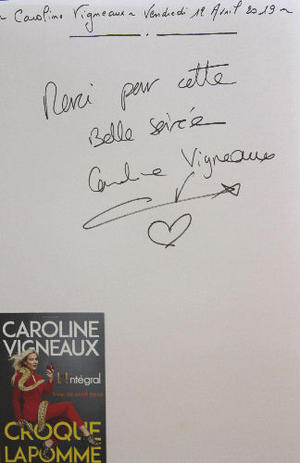 ~ Caroline Vigneaux ~ Vendredi 12 Avril 2019 ~
Merci pour cette
Belle soirée
Caroline Vigneaux
CAROLINE
VIGNEAUX
L'Intégral
CROQUE
LAPOMME